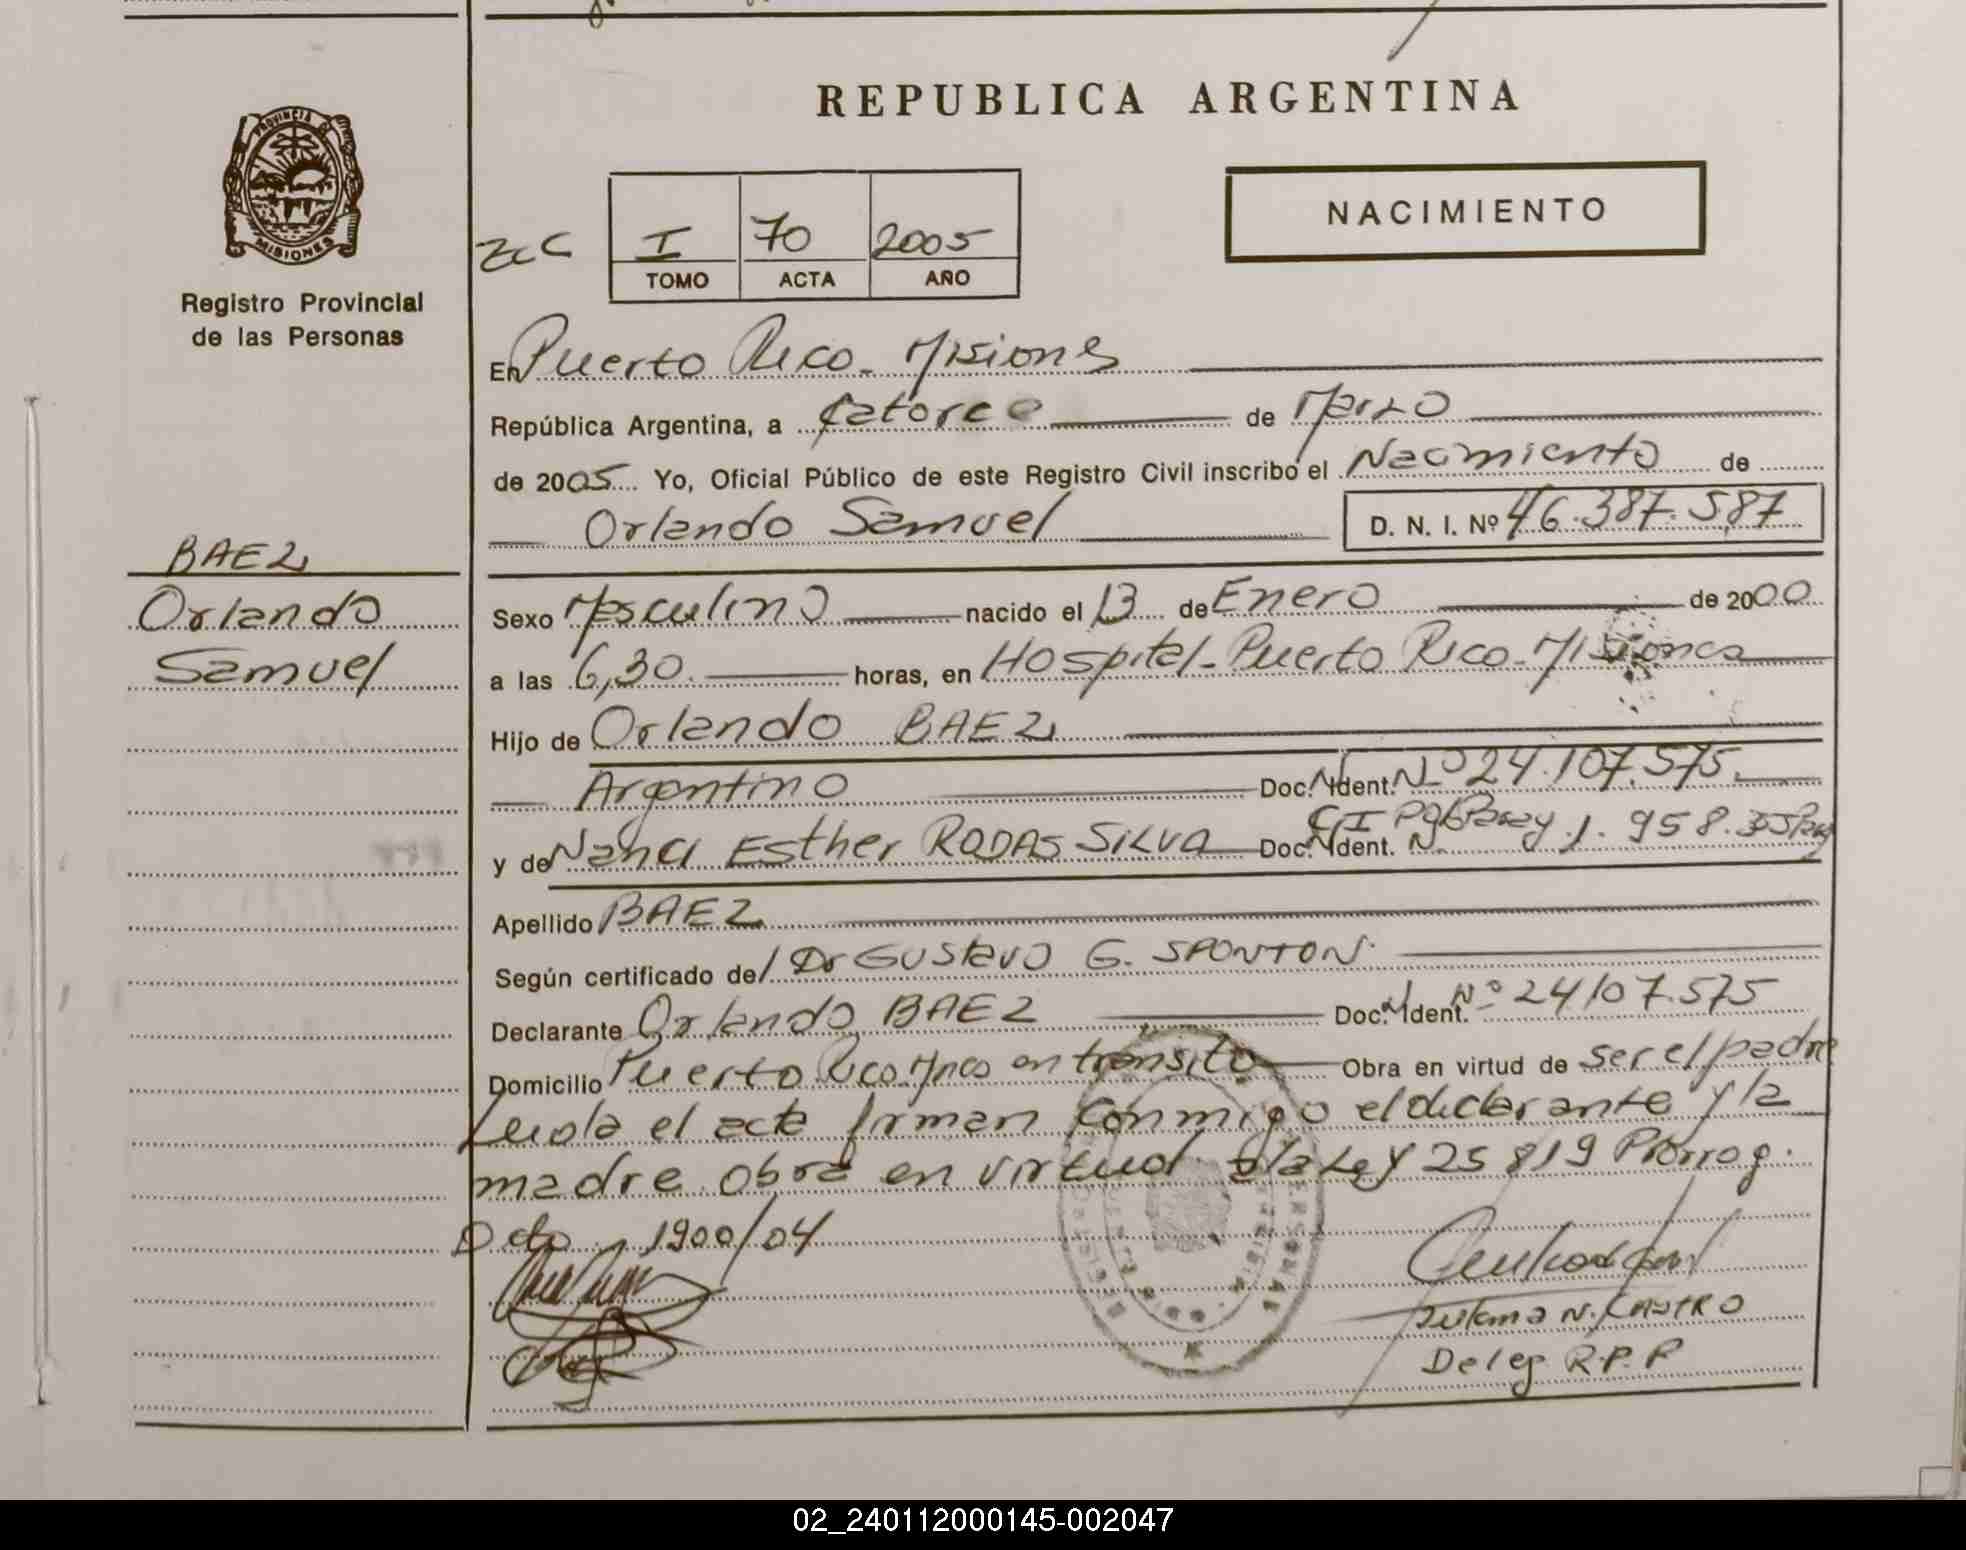 REPUBLICA ARGENTINA
PROVINCIA DE
MISIONES
Registro Provincial
de las Personas
NACIMIENTO
I 70 2005
TOMO ACTA AÑO
En Puerto Rico - Misiones
República Argentina, a Catorce de Marzo
de 2005 Yo, Oficial Público de este Registro Civil inscribo el Nacimiento de
Orlando Samuel D. N. I. Nº 46.387.587
BAEZ
Orlando
Samuel
Sexo Masculino nacido el 13 de Enero de 2000
a las 6,30. horas, en Hospital - Puerto Rico - Misiones
Hijo de Orlando BAEZ
Argentino Doc. N. Ident. Nº 24.107.575.
y de Nanci Esther RODAS SILVA Doc. N. Ident. N. CI 1.958.
Apellido BAEZ
Según certificado del Dr Gustavo G. SPONTON
Declarante Orlando BAEZ Doc. N. Ident. Nº 24107.575
Domicilio Puerto Rico Mnes en transito Obra en virtud de ser el padre
Leida el acta firman conmigo el declarante y la
madre obra en virtud a la Ley 25819 Prorrog.
Dcto 1900/04
N. CASTRO
Deleg R.P.P
02_240112000145-002047